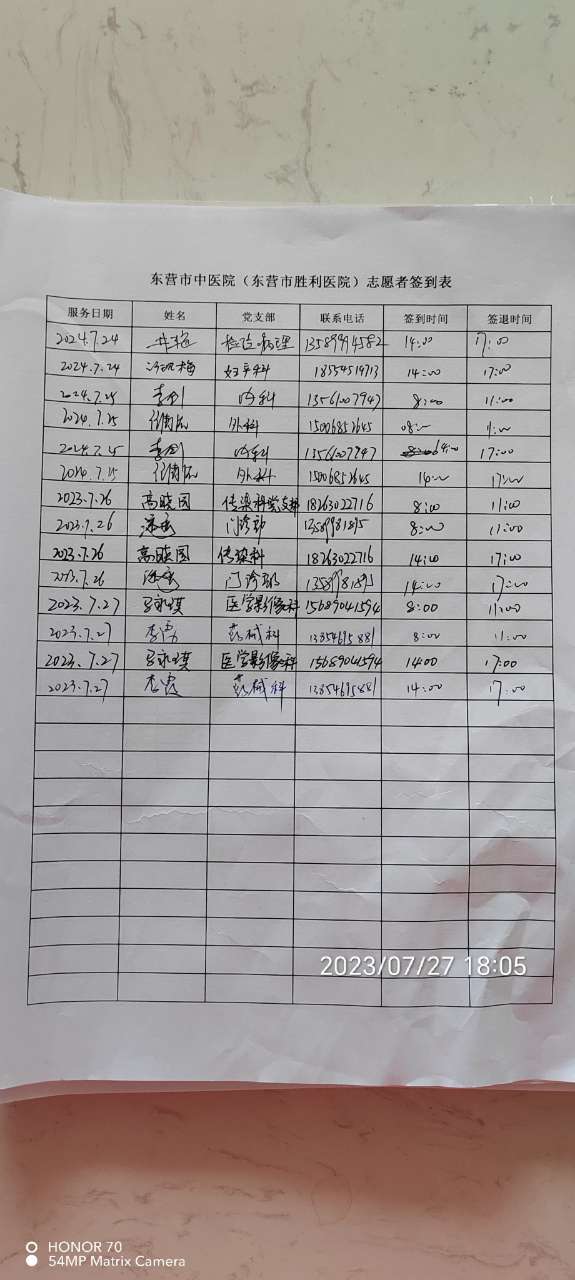 东营市中医院（东营市胜利医院）志愿者签到表
服务日期 姓名 党支部 联系电话 签到时间 签退时间
2024.7.24 检验病理 13589994582 14:00 17:00
2024.7.24 妇产科 18554519713 14:00 17:00
2024.7.25 内科 13561007947 8:00 11:00
2024.7.25 外科 15006852645 08:00 11:00
2024.7.25 内科 13561007947 14:00 17:00
2024.7.25 外科 15006852645 14:00 17:00
2023.7.26 高晓园 传染科党支部 18263022716 8:00 11:00
2023.7.26 门诊部 13589981895 8:00 11:00
2023.7.26 高晓园 传染科 18263022716 14:00 17:00
2023.7.26 门诊部 13589981895 14:00 17:00
2023.7.27 医学影像科 15689041594 8:00 11:00
2023.7.27 药械科 13854695881 8:00 11:00
2023.7.27 医学影像科 15689041594 14:00 17:00
2023.7.27 药械科 13854695881 14:00 17:00
2023/07/27 18:05
HONOR 70
54MP Matrix Camera